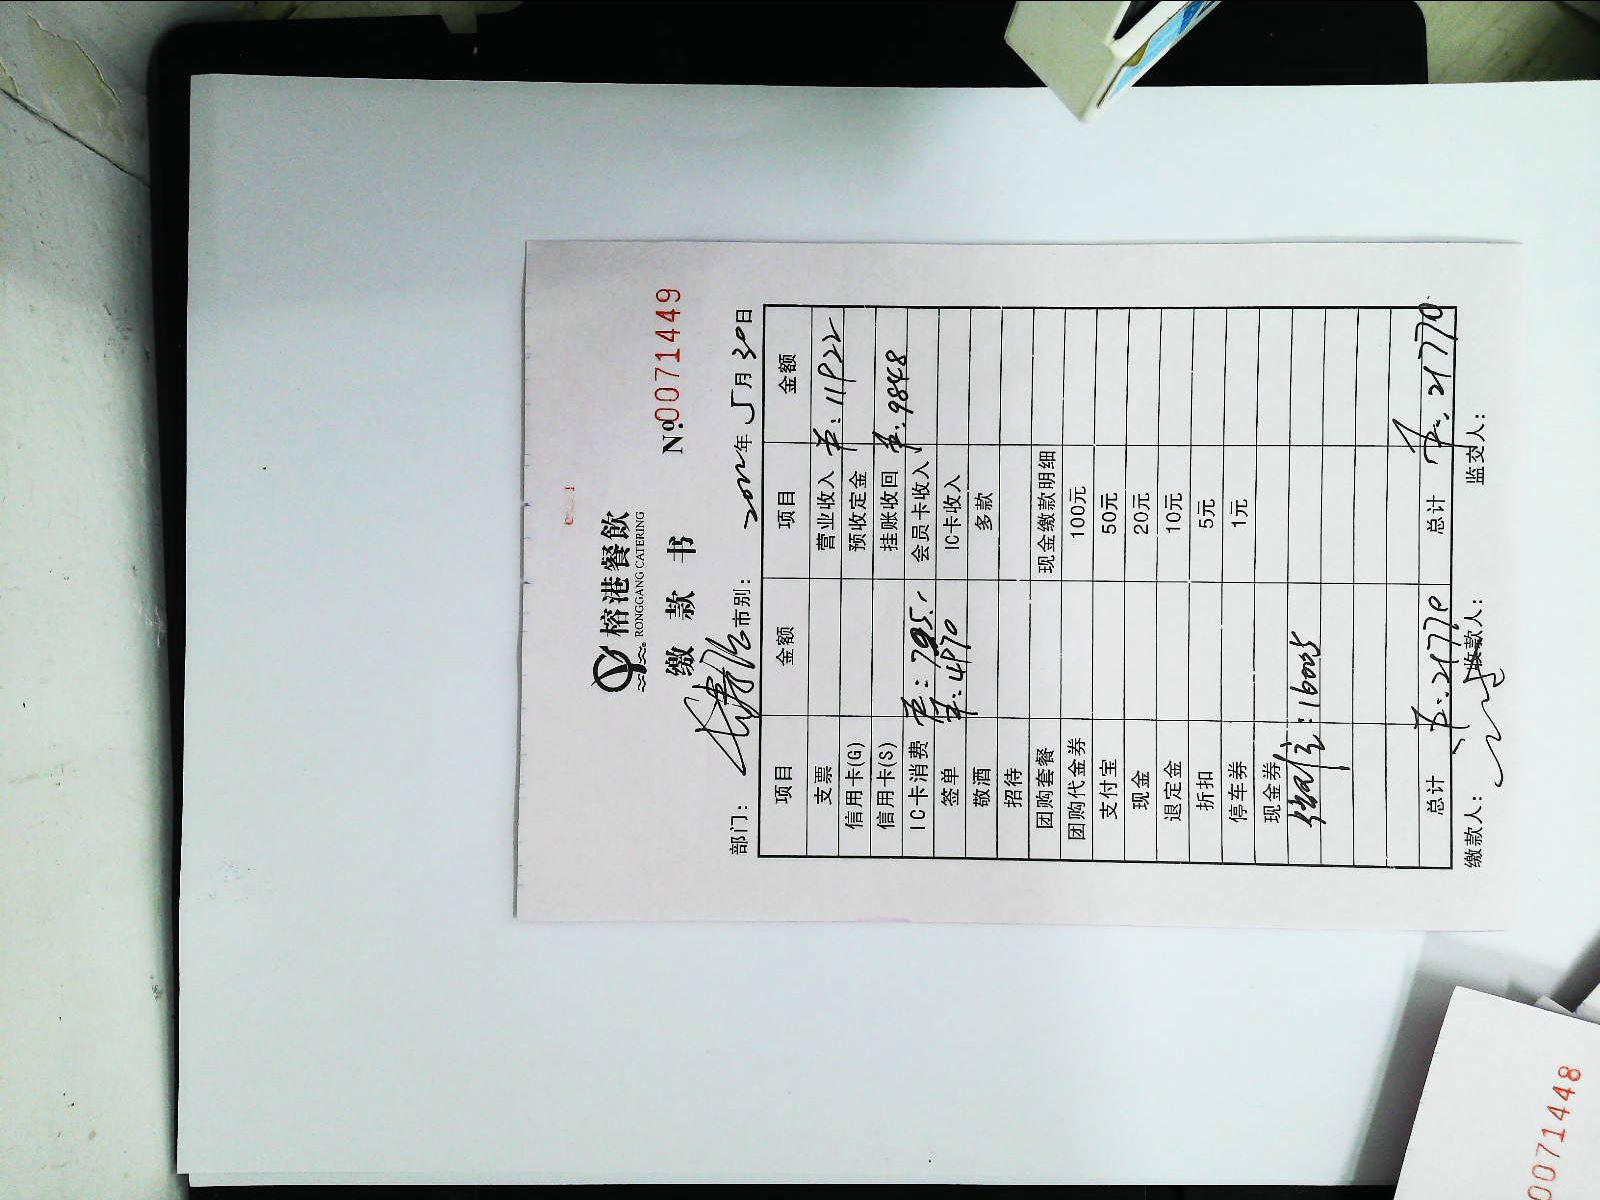 榕港餐飲
RONGGANG CATERING
缴 款 书
Nº 0071449
部门： 市别： 2022年5月30日
项目 金额 项目 金额
支票 营业收入 ¥：11922
信用卡(G) 预收定金
信用卡(S) 挂账收回 ¥：9848
IC卡消费 ¥：795.- 会员卡收入
签单 ¥：4970 IC卡收入
敬酒 多款
招待
团购套餐 现金缴款明细
团购代金券 100元
支付宝 50元
现金 20元
退定金 10元
折扣 5元
停车券 1元
现金券
：16005
总计 ¥：21770 总计 ¥：21770
缴款人： 收款人： 监交人：
0071448